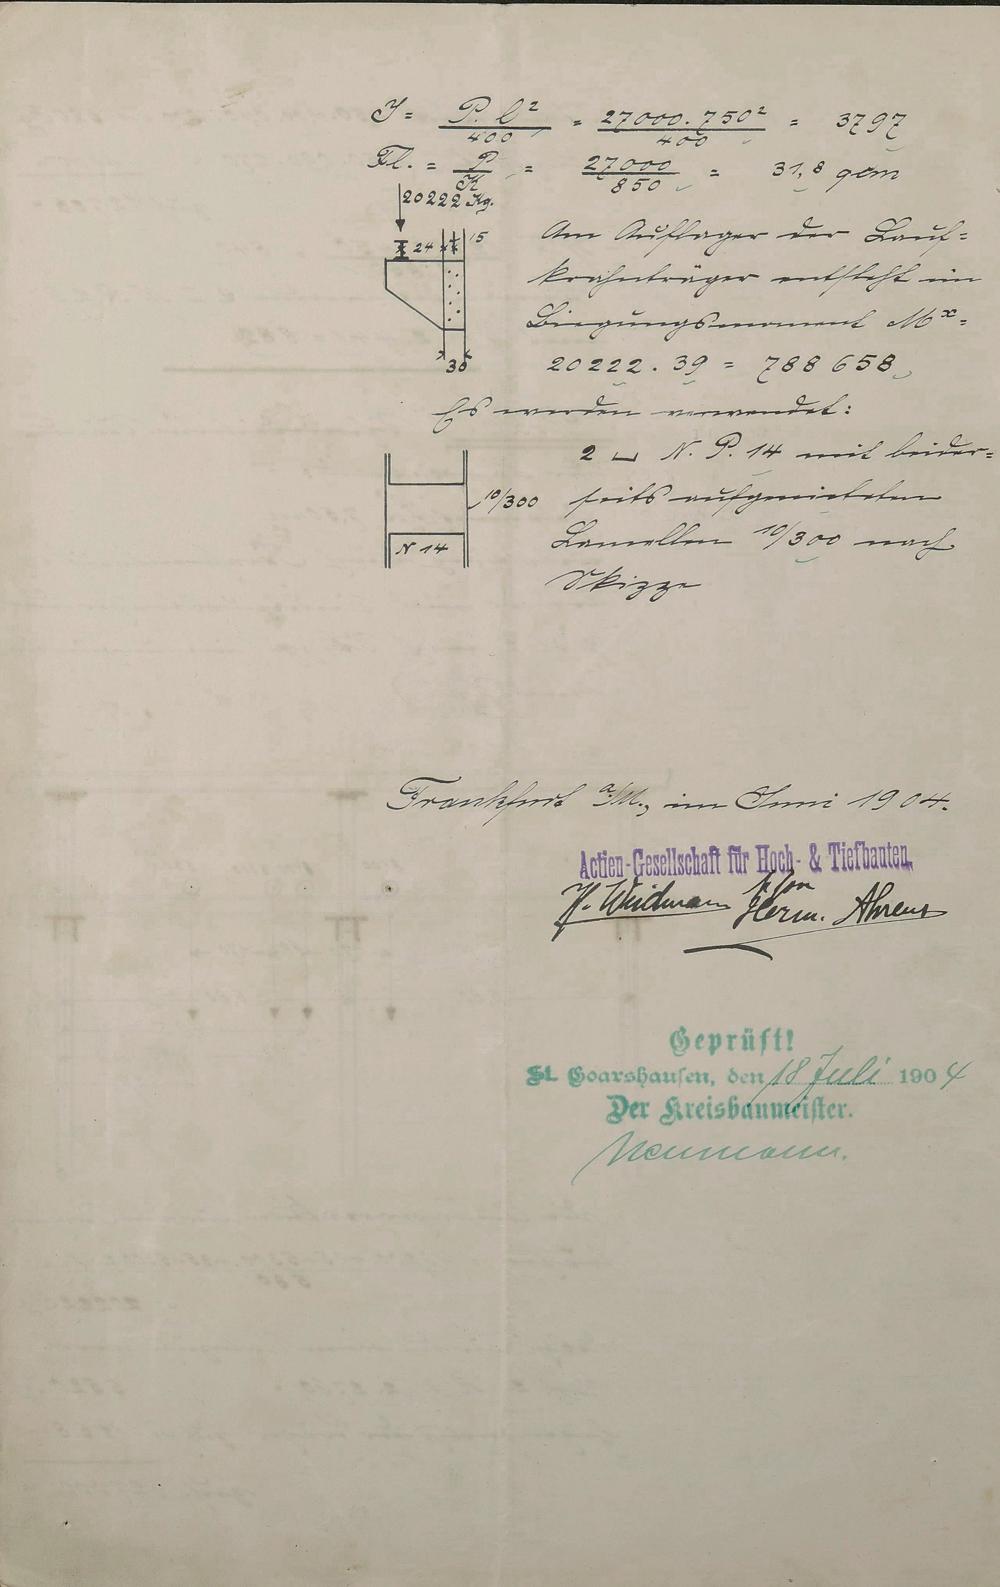 J = P. l² / 400 = 27000. 750² / 400 = 3797
Fl. = P / K = 27000 / 850 = 31,8 qcm
20222 Kg.
24 15
30
Am Auflager der Lauf=
krahnträger entsteht ein
Biegungsmoment Mx=
20222. 39 = 788658
Es werden verwendet:
2 N. P. 14 mit beider=
seits aufgenieteten
Lamellen 10/300 nach
Skizze
10/300
N 14
Frankfurt a/M., im Juni 1904.
Actien-Gesellschaft für Hoch- & Tiefbauten.
H. Weidmann ppa Herm. Ahrens
Geprüft!
St. Goarshausen, den 18 Juli 1904
Der Kreisbaumeister.
Neumann.